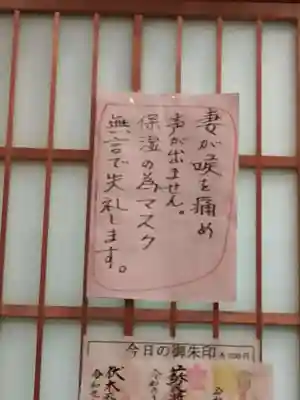 妻が喉を痛め
声が出ません。
保湿の為マスク
無言で失礼します。
今日の御朱印